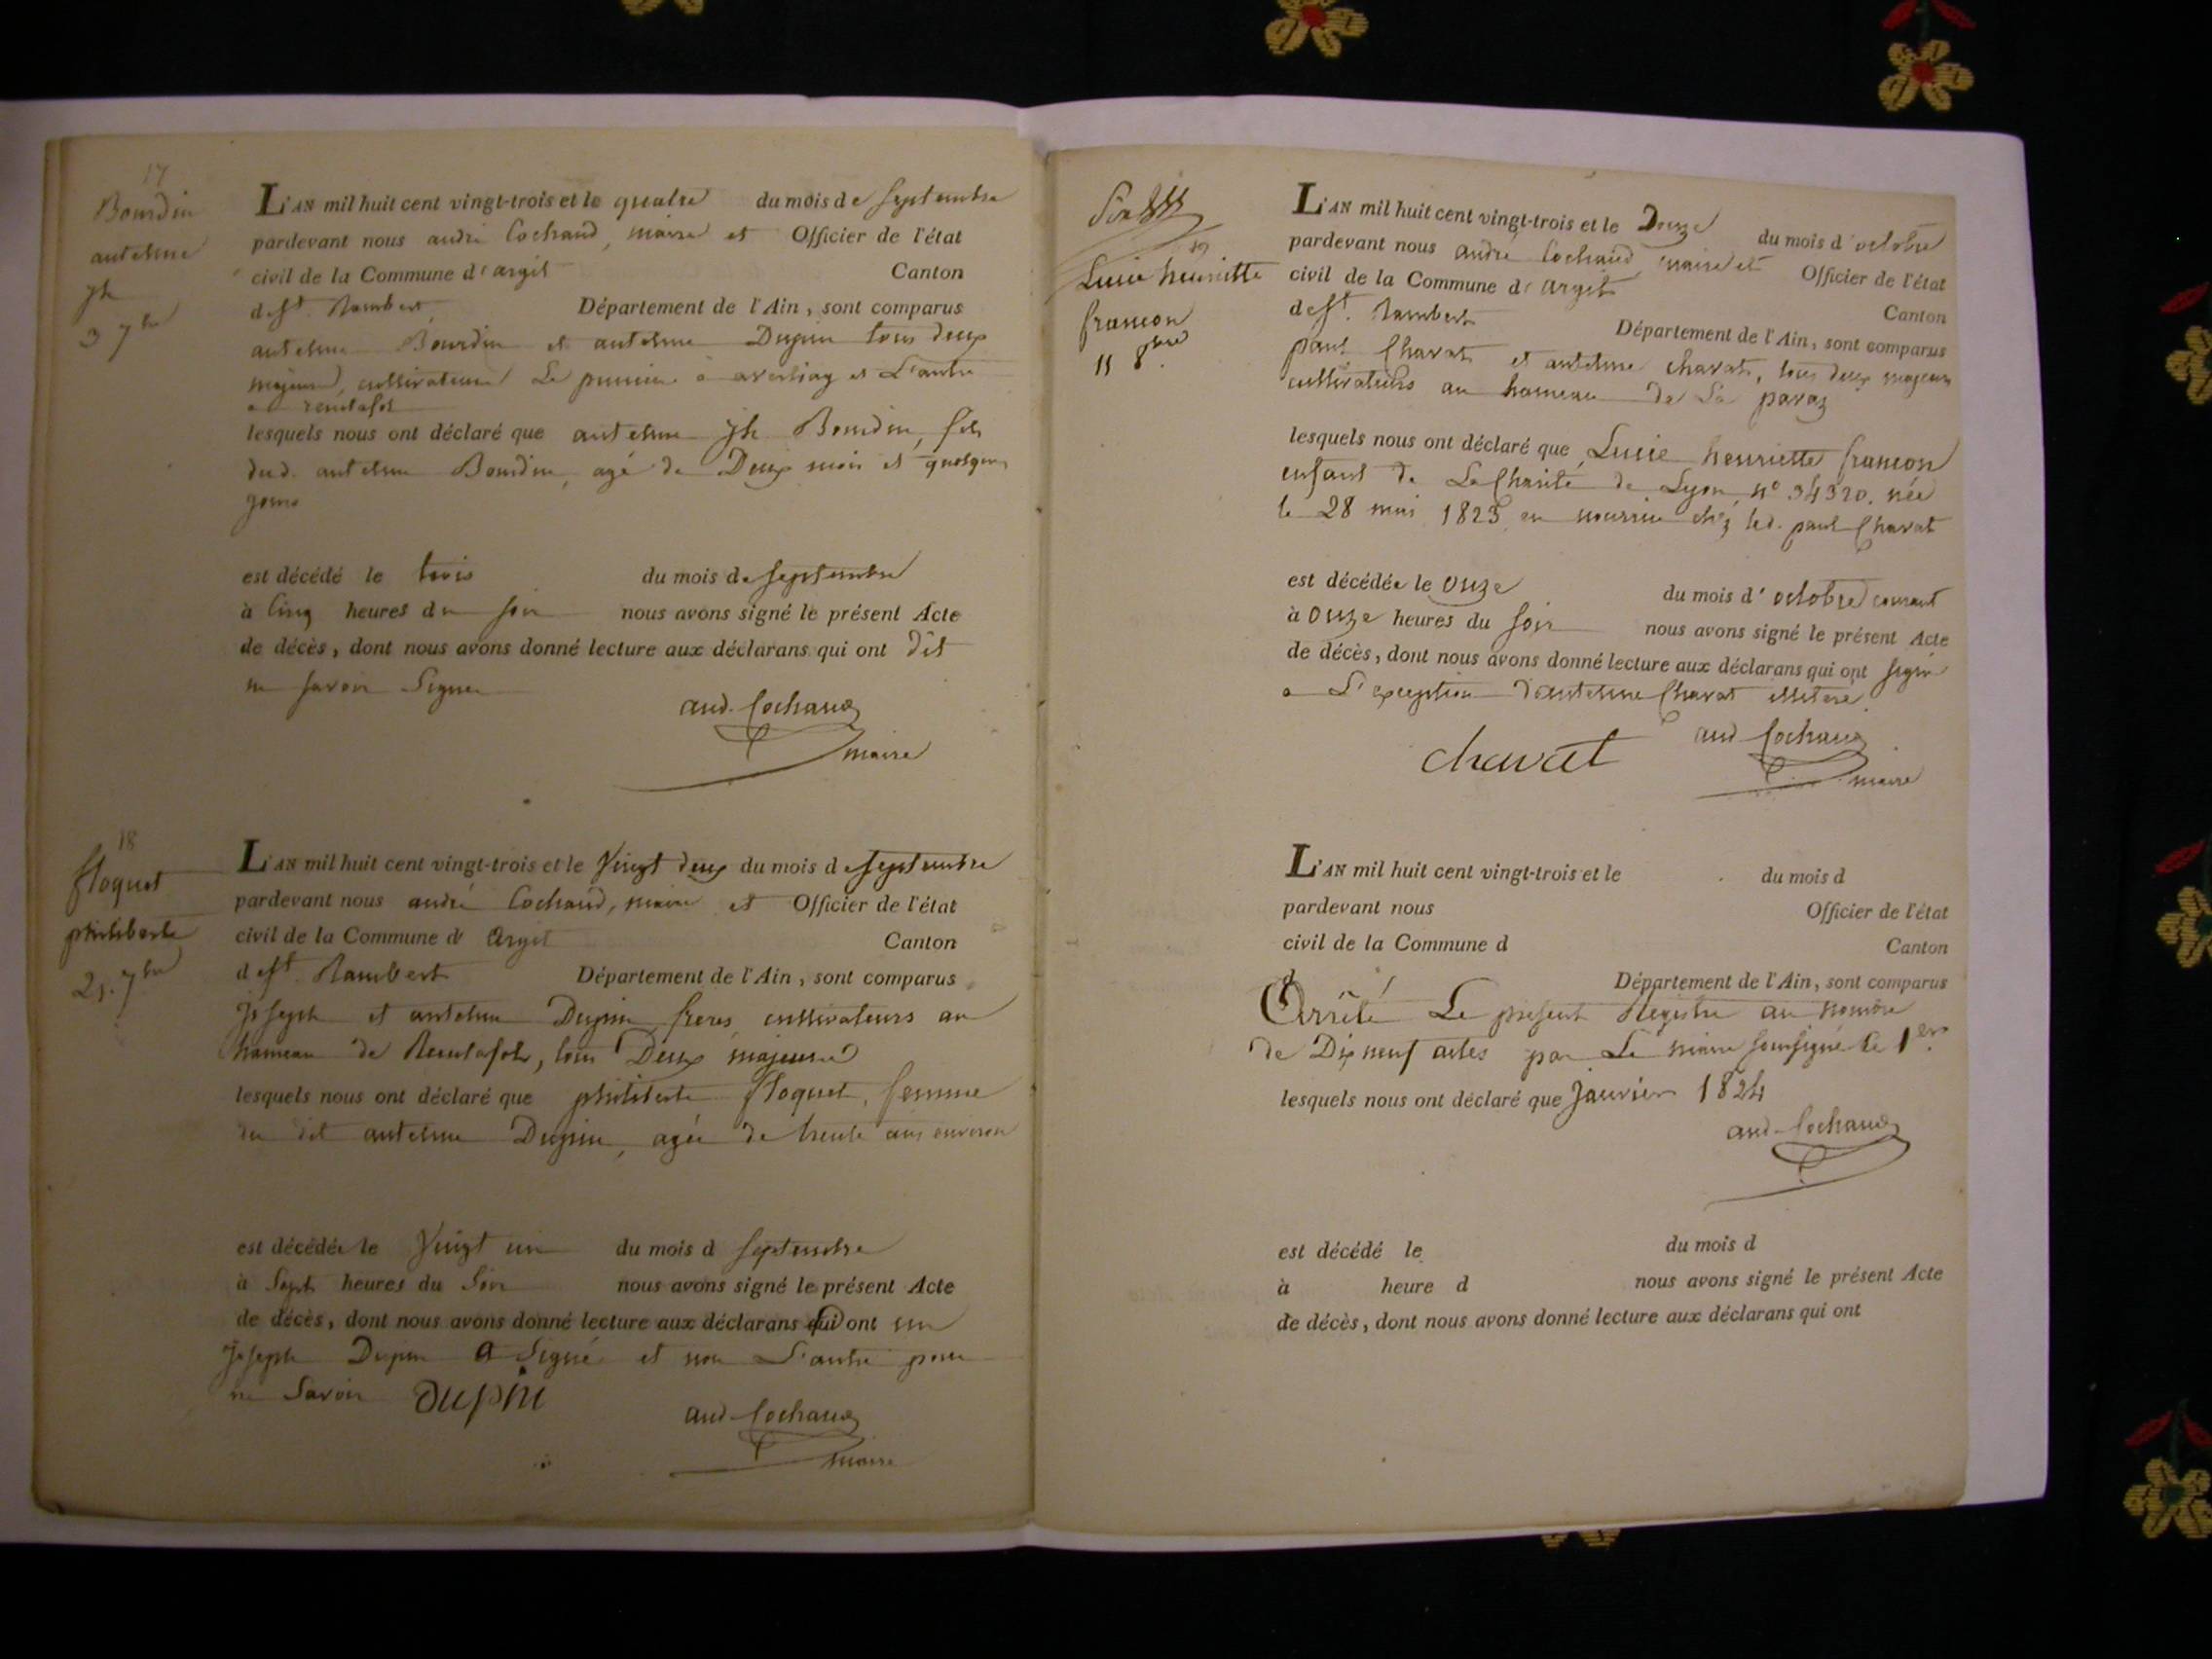 17
Bourdin
antelme
jh
3 7bre
L'AN mil huit cent vingt-trois et le quatre du mois de septembre
pardevant nous andré Cochaud, maire et Officier de l'état
civil de la Commune d'argit Canton
de st. Rambert Département de l'Ain, sont comparus
antelme Bourdin et antelme Dupin tous deux
majeurs, cultivateurs Le premier à averliaz et L'autre
a
lesquels nous ont déclaré que antelme jh Bourdin, fils
dud. antelme Bourdin, agé de Deux mois et quelques
jours
est décédé le trois du mois de septembre
à cinq heures du soir nous avons signé le présent Acte
de décès, dont nous avons donné lecture aux déclarans qui ont dit
ne savoir signer
and. Cochaud
maire
18
floquet
philiberte
21. 7bre
L'AN mil huit cent vingt-trois et le Vingt deux du mois de septembre
pardevant nous andré Cochaud, maire et Officier de l'état
civil de la Commune d' argit Canton
de st. Rambert Département de l'Ain, sont comparus
joseph et antelme Dupin freres, cultivateurs au
hameau de, tous Deux majeurs
lesquels nous ont déclaré que philiberte floquet, femme
du dit antelme Dupin, agée de trente ans environ
est décédée le Vingt un du mois d septembre
à Sept heures du Soir nous avons signé le présent Acte
de décès, dont nous avons donné lecture aux déclarans qui ont
joseph Dupin a Signé et non L'autre pour
ne Savoir dupin
and. Cochaud
maire
19
Lucie henriette
francon
11 8bre
L'AN mil huit cent vingt-trois et le Douze du mois d'octobre
pardevant nous andré Cochaud maire et Officier de l'état
civil de la Commune d'argit Canton
de st. Rambert Département de l'Ain, sont comparus
paul Chavat et antelme chavat, tous deux majeurs
cultivateurs au hameau de La paraz
lesquels nous ont déclaré que Lucie henriette francon
enfant de La Charité de Lyon, n° 34320. née
le 28 mai 1823 en nourrice chez led. paul Chavat
est décédée le onze du mois d'octobre courant
à onze heures du soir nous avons signé le présent Acte
de décès, dont nous avons donné lecture aux déclarans qui ont signé
a L'exception d'antelme Chavat illiteré.
chavat
and Cochaud
maire
L'AN mil huit cent vingt-trois et le du mois d
pardevant nous Officier de l'état
civil de la Commune d Canton
d Département de l'Ain, sont comparus
Arrêté Le present Registre au nombre
de Dix neuf actes par Le maire soussigné le 1er.
lesquels nous ont déclaré que janvier 1824
and. Cochaud
est décédé le du mois d
à heure d nous avons signé le présent Acte
de décès, dont nous avons donné lecture aux déclarans qui ont